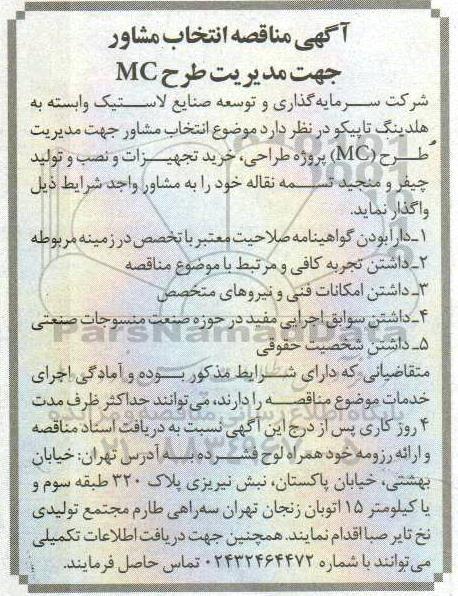 آگهی مناقصه انتخاب مشاور
جهت مدیریت طرح MC
شرکت سرمایه‌گذاری و توسعه صنایع لاستیک وابسته به
هلدینگ تاپیکو در نظر دارد موضوع انتخاب مشاور جهت مدیریت
طرح (MC) پروژه طراحی، خرید تجهیزات و نصب و تولید
چیفر و منجید تسمه نقاله خود را به مشاور واجد شرایط ذیل
واگذار نماید.
۱ـ دارا بودن گواهینامه صلاحیت معتبر با تخصص در زمینه مربوطه
۲ـ داشتن تجربه کافی و مرتبط با موضوع مناقصه
۳ـ داشتن امکانات فنی و نیروهای متخصص
۴ـ داشتن سوابق اجرایی مفید در حوزه صنعت منسوجات صنعتی
۵ـ داشتن شخصیت حقوقی
متقاضیانی که دارای شرایط مذکور بوده و آمادگی اجرای
خدمات موضوع مناقصه را دارند، می‌توانند حداکثر ظرف مدت
۴ روز کاری پس از درج این آگهی نسبت به دریافت اسناد مناقصه
و ارائه رزومه خود همراه لوح فشرده به آدرس تهران: خیابان
بهشتی، خیابان پاکستان، نبش نیریزی پلاک ۳۲۰ طبقه سوم و
یا کیلومتر ۱۵ اتوبان زنجان تهران سه‌راهی طارم مجتمع تولیدی
نخ تایر صبا اقدام نمایند. همچنین جهت دریافت اطلاعات تکمیلی
می‌توانند با شماره ۰۲۴۳۲۴۶۴۴۷۲ تماس حاصل فرمایند.
ParsNamadData
پایگاه اطلاع رسانی مناقصه و مزایده